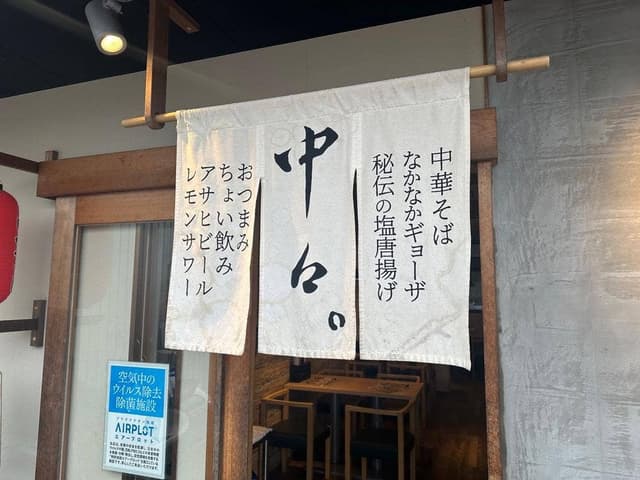 中華そば
なかなかギョーザ
秘伝の塩唐揚げ
中々。
おつまみ
ちょい飲み
アサヒビール
レモンサワー
空気中の
ウイルス除去
除菌施設
AIRPLOT
エアープロット